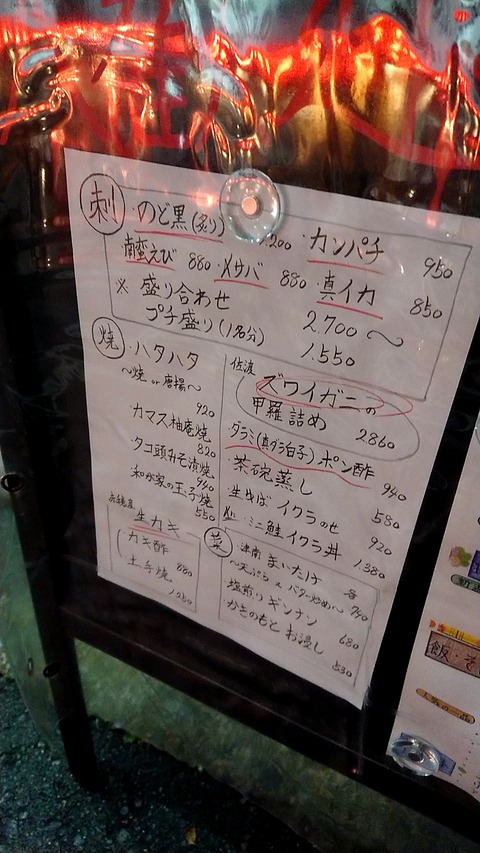 刺 ・のど黒(炙り) 1,200 ・カンパチ 950
南蛮えび 880 ・〆サバ 880 ・真イカ 850
※ 盛り合わせ 2.700〜
プチ盛り(1名分) 1.550
焼 ・ハタハタ
〜焼 or 唐揚〜 920
・カマス柚庵焼 820
・タコ頭みそ漬焼 940
・和が家の玉子焼 550
生カキ
カキ酢 880
土手焼 1,050
佐渡 ズワイガニの
甲羅詰め 2860
・ダラミ(真ダラ白子)ポン酢 940
・茶碗蒸し 580
・生ゆば イクラのせ 920
・ミニ鮭イクラ丼 1.380
菜 ・津南 まいたけ
〜天ぷら or バター炒め〜 各 740
塩煎りギンナン 680
かきのもと お浸し 530
飯・そ